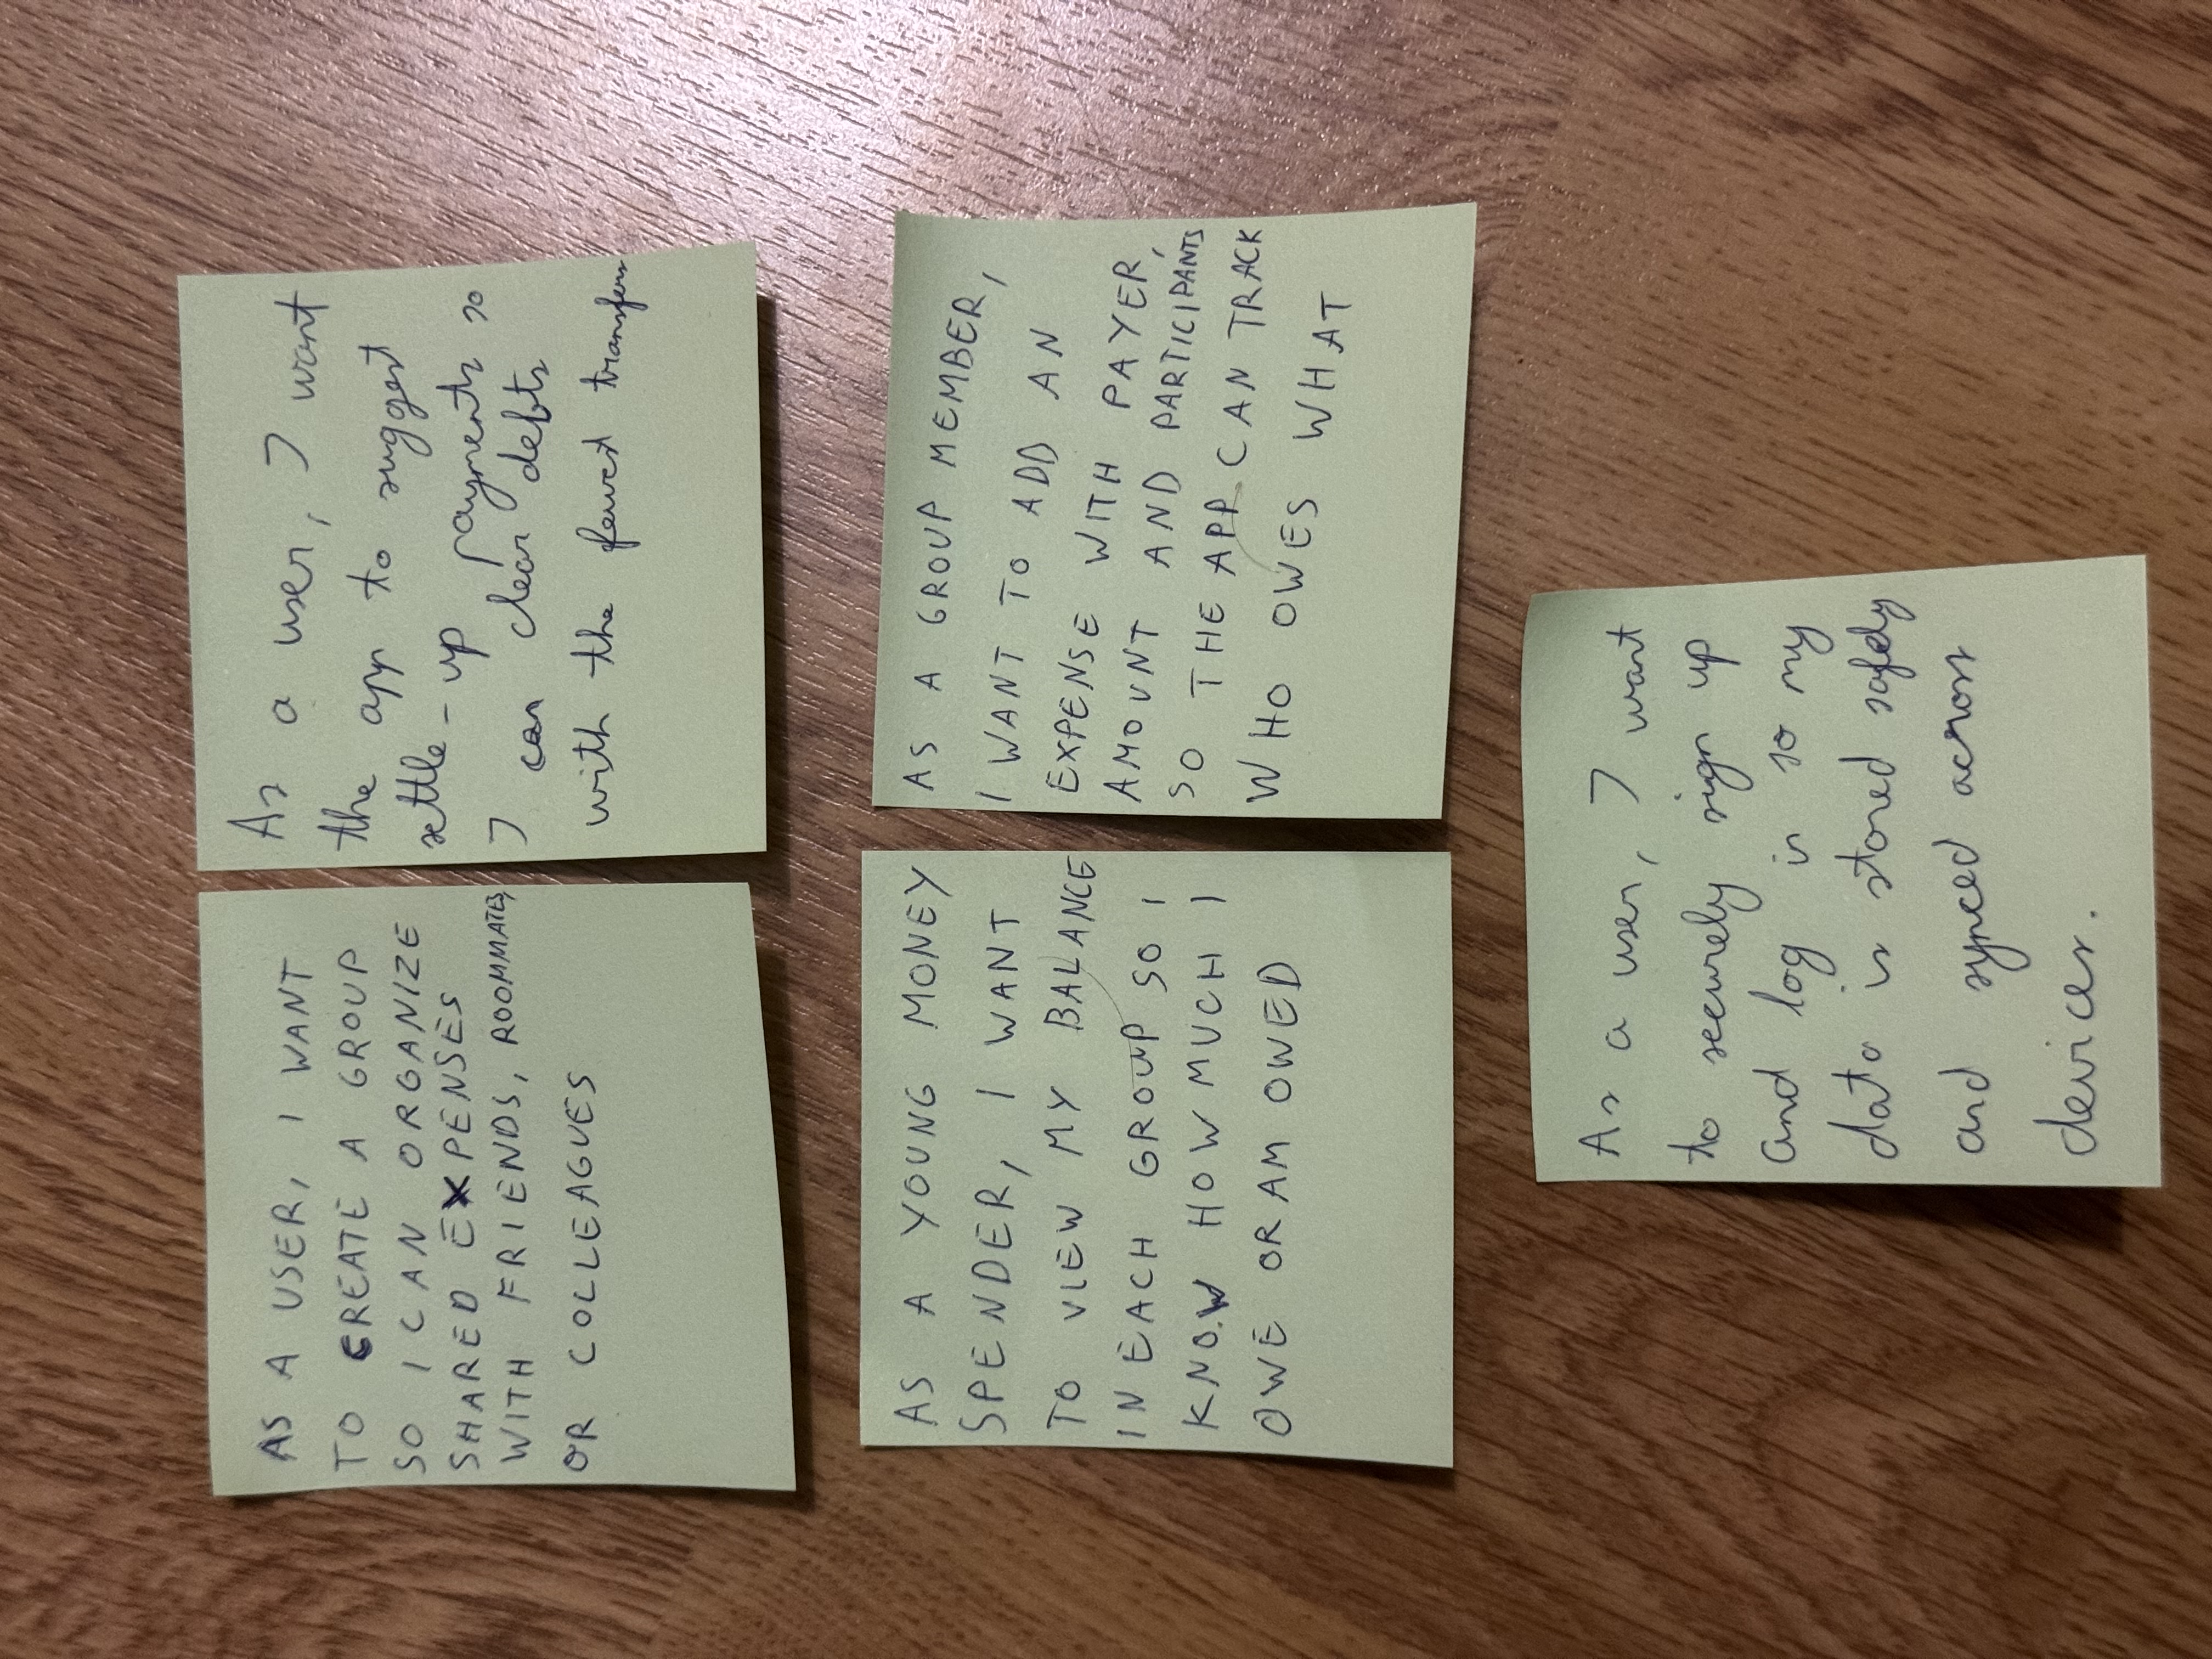 AS A USER, I WANT
TO CREATE A GROUP
SO I CAN ORGANIZE
SHARED EXPENSES
WITH FRIENDS, ROOMMATES,
OR COLLEAGUES
As a user, I want
the app to suggest
settle-up payments so
I can clear debts
with the fewest transfers
AS A YOUNG MONEY
SPENDER, I WANT
TO VIEW MY BALANCE
IN EACH GROUP SO I
KNOW HOW MUCH I
OWE OR AM OWED
AS A GROUP MEMBER,
I WANT TO ADD AN
EXPENSE WITH PAYER,
AMOUNT AND PARTICIPANTS
SO THE APP CAN TRACK
WHO OWES WHAT
As a user, I want
to securely sign up
and log in so my
data is stored safely
and synced across
devices.